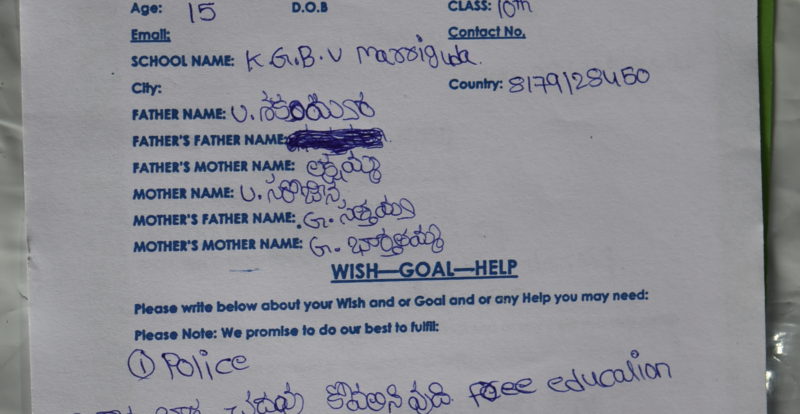 Age: 15 D.O.B CLASS: 10th
Email: Contact No.
SCHOOL NAME: K.G.B.V Marriguda.
City: Country: 8179128450
FATHER NAME: U.
FATHER'S FATHER NAME:
FATHER'S MOTHER NAME: లక్ష్మమ్మ
MOTHER NAME: U. సరోజన
MOTHER'S FATHER NAME: G. సత్తయ్య
MOTHER'S MOTHER NAME: G. భారతమ్మ
WISH—GOAL—HELP
Please write below about your Wish and or Goal and or any Help you may need:
Please Note: We promise to do our best to fulfil:
① Police
చదువు free education